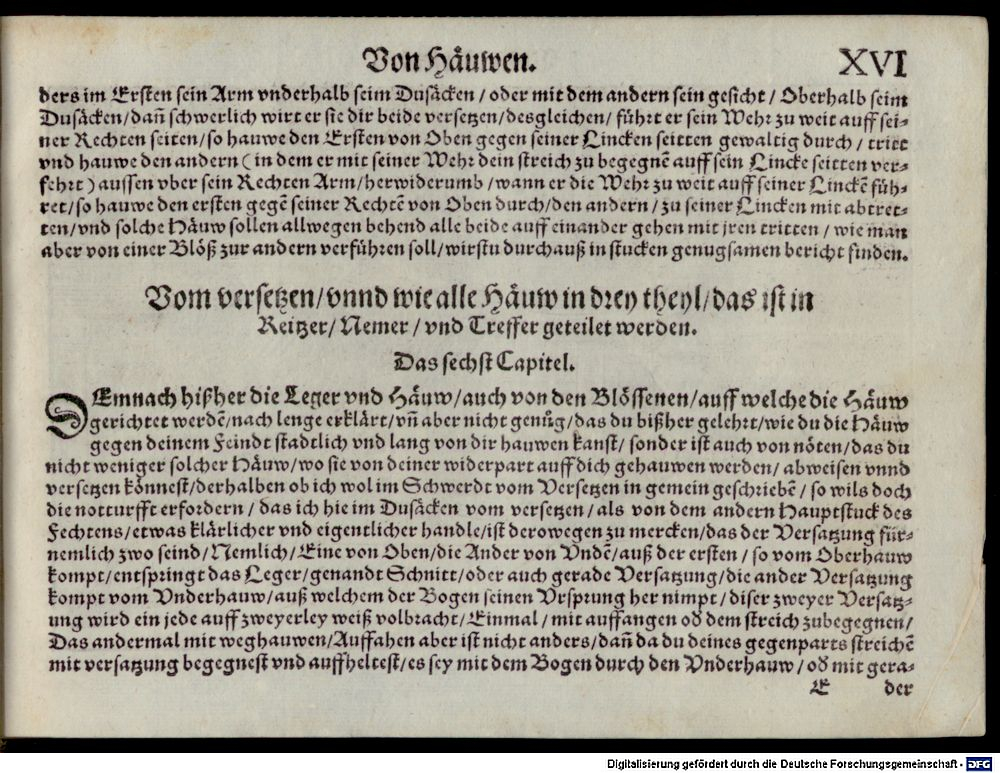 Von Häuwen. XVI
ders im Ersten sein Arm vnderhalb seim Dusäcken / oder mit dem andern sein gesicht / Oberhalb seim
Dusäcken / dañ schwerlich wirt er sie dir beide versetzen / desgleichen / führt er sein Wehr zu weit auff sei-
ner Rechten seiten / so hauwe den Ersten von Oben gegen seiner Lincken seitten gewaltig durch / tritt
vnd hauwe den andern ( in dem er mit seiner Wehr dein streich zu begegnē auff sein Lincke seitten ver-
fehrt ) aussen vber sein Rechten Arm / herwiderumb / wann er die Wehr zu weit auff seiner Linckē füh-
ret / so hauwe den ersten gegē seiner Rechtē von Oben durch / den andern / zu seiner Lincken mit abtret-
ten / vnd solche Häuw sollen allwegen behend alle beide auff einander gehen mit jren tritten / wie man
aber von einer Blöß zur andern verführen soll / wirstu durchauß in stucken genugsamen bericht finden.
Vom versetzen / vnnd wie alle Häuw in drey theyl / das ist in
Reitzer / Nemer / vnd Treffer geteilet werden.
Das sechst Capitel.
DEmnach hißher die Leger vnd Häuw / auch von den Blössenen / auff welche die Häuw
gerichtet werdē / nach lenge erklärt / vñ aber nicht genůg / das du bißher gelehrt / wie du die Häuw
gegen deinem Feindt stadtlich vnd lang von dir hauwen kanst / sonder ist auch von nöten / das du
nicht weniger solcher Häuw / wo sie von deiner widerpart auff dich gehauwen werden / abweisen vnnd
versetzen könnest / derhalben ob ich wol im Schwerdt vom Versetzen in gemein geschriebē / so wils doch
die notturfft erfordern / das ich hie im Dusäcken vom versetzen / als von dem andern Hauptstuck des
Fechtens / etwas klärlicher vnd eigentlicher handle / ist derowegen zu mercken / das der Versatzung für-
nemlich zwo seind / Nemlich / Eine von Oben / die Ander von Vndē / auß der ersten / so vom Oberhauw
kompt / entspringt das Leger / genandt Schnitt / oder auch gerade Versatzung / die ander Versatzung
kompt vom Vnderhauw / auß welchem der Bogen seinen Vrsprung her nimpt / diser zweyer Versatz-
ung wird ein jede auff zweyerley weiß volbracht / Einmal / mit auffangen od̄ dem streich zubegegnen /
Das andermal mit weghauwen / Auffahen aber ist nicht anders / dañ da du deines gegenparts streichē
mit versatzung begegnest vnd auffheltest / es sey mit dem Bogen durch den Vnderhauw / od̄ mit gera-
E der
Digitalisierung gefördert durch die Deutsche Forschungsgemeinschaft - DFG